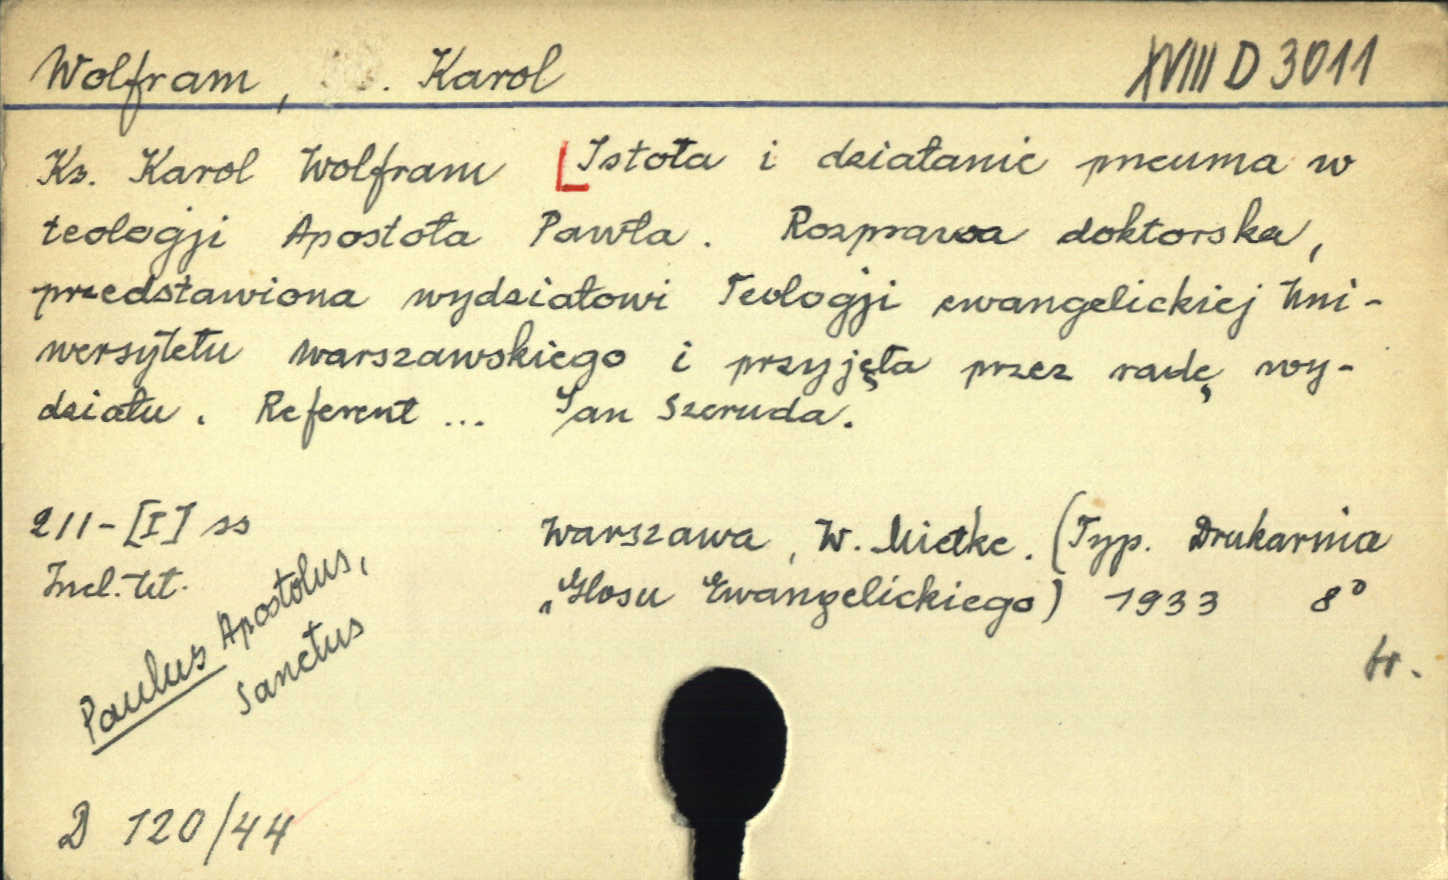 Wolfram, . Karol XVIII D 3011
Ks. Karol Wolfram Istota i działanie pneuma w
teologji Apostoła Pawła. Rozprawa doktorska,
przedstawiona wydziałowi Teologji ewangelickiej Uni-
wersytetu warszawskiego i przyjęta przez radę wy-
działu. Referent ... Jan Szeruda.
211-[I] ss Warszawa, W. Mietke. (Typ. Drukarnia
Incl. tit. „Głosu Ewangelickiego) 1933 8°
tr.
Paulus Apostolus,
Sanctus
D 120/44